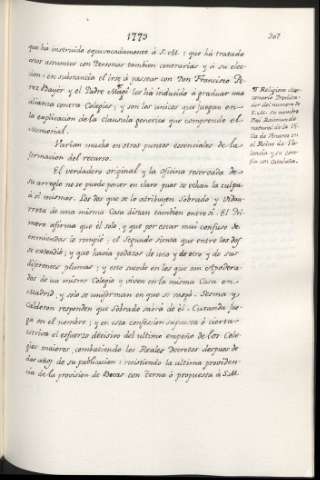 1773
207
que há instruido equivocadamente á S.M: que há tratado
esos asuntos con Personas tambien contrarias y á su elec-
cion: en substancia el irse á pasear con Don Francisco Pe-
rez Bayer y el Padre Magi los há inducido á graduar una
alianza contra Colegios; y son las unicas que juegan en
la explicacion de la clausula generica que comprende el
Memorial.
Harian mucho en otros puntos esenciales de la
formacion del recurso.
El verdadero original y la oficina reservada de
su arreglo no se puede poner en claro pues se echan la culpa
á sí mismos. Los dos que se lo atribuyen Sobrado y Vidar-
rreta de una misma Casa distan tambien entre sí. El Pri-
mero afirma que él solo, y que por estar mui confuso de
enmiendas lo rompió; el Segundo sienta que entre los dos
se extendió; y que havia pedazos de uno y de otro y de sus
diferentes plumas; y esto sucede en los que son Apodera-
dos de un mismo Colegio y viven en la misma Casa en
Madrid, y solo se uniforman en que se rasgó.
Calderon responden que Sobrado sacró de él.
ga en el nombre; y en esta confusion supuesta ó cierta
estriva el esfuerzo decisivo del ultimo empeño de los Cole-
gios maiores, combatiendo los Reales Decretos despues de
dos años de su publicacion: resistiendo la ultima providen-
cia de la provision de Becas con terna ó propuesta á S.M.
El Religioso Mer-
cenario
dor del numero de
S.M. su nombre
Frai Raimundo
natural de la Vi-
lla de
el Reino de